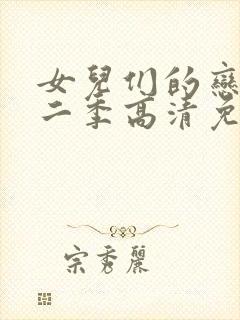 女兒们的戀
二季高清免
宗秀麗